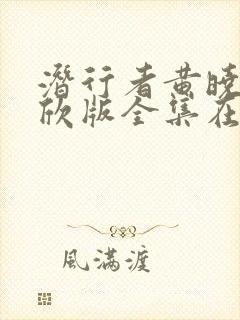 潛行者黄晓
欣版全集在
風滿渡